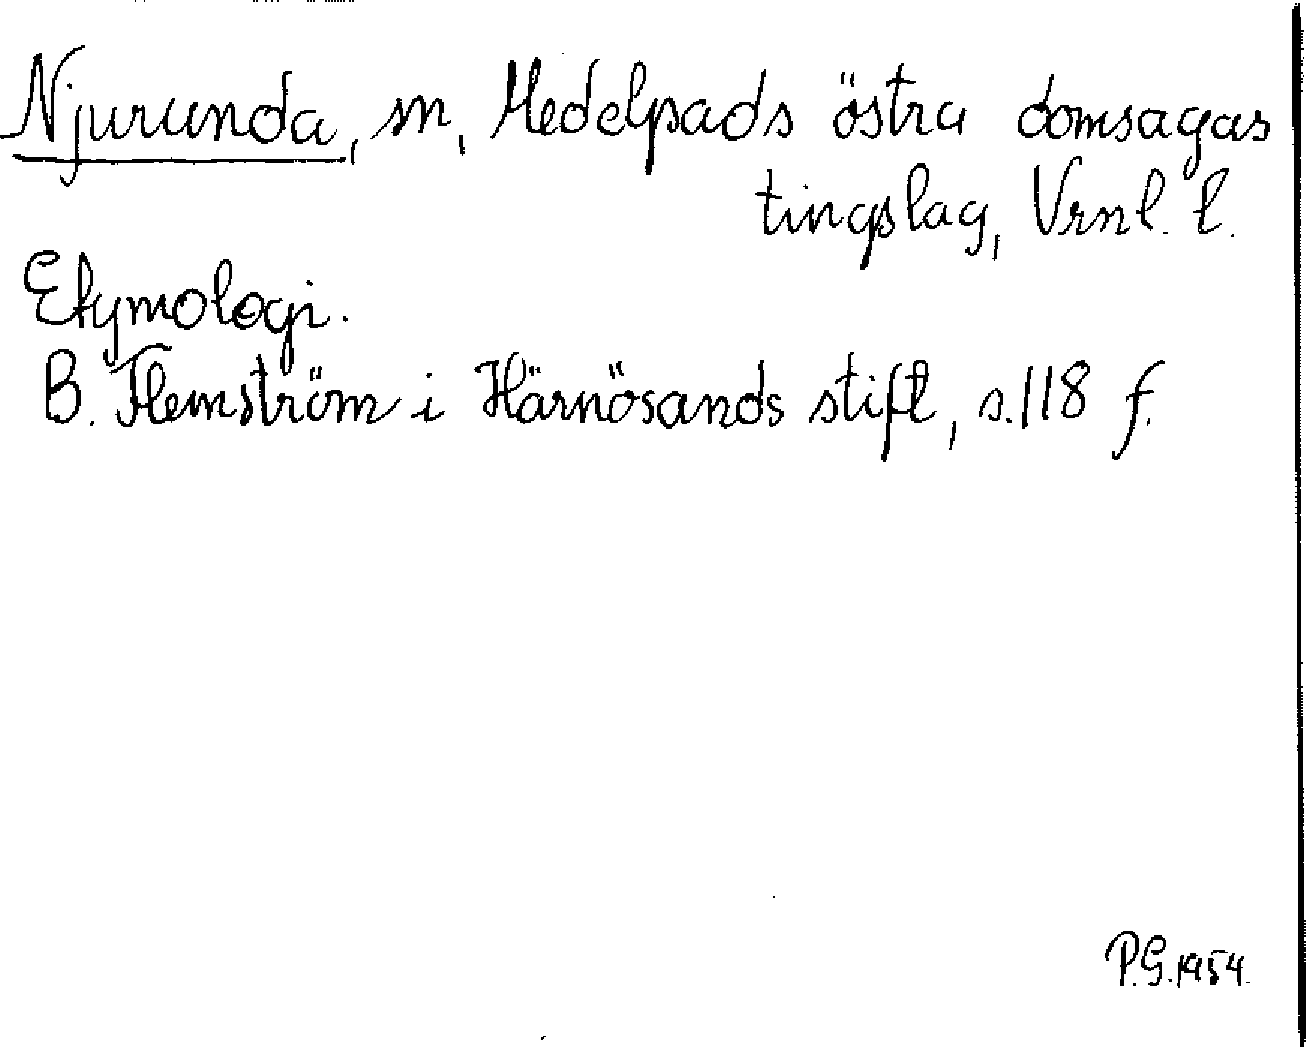 Njurunda, sn, Medelpads östra domsagas
tingslag, Vrnl. l.
Etymologi.
B. Flemström i Härnösands stift, s. 118 f.
P.G. 1954.